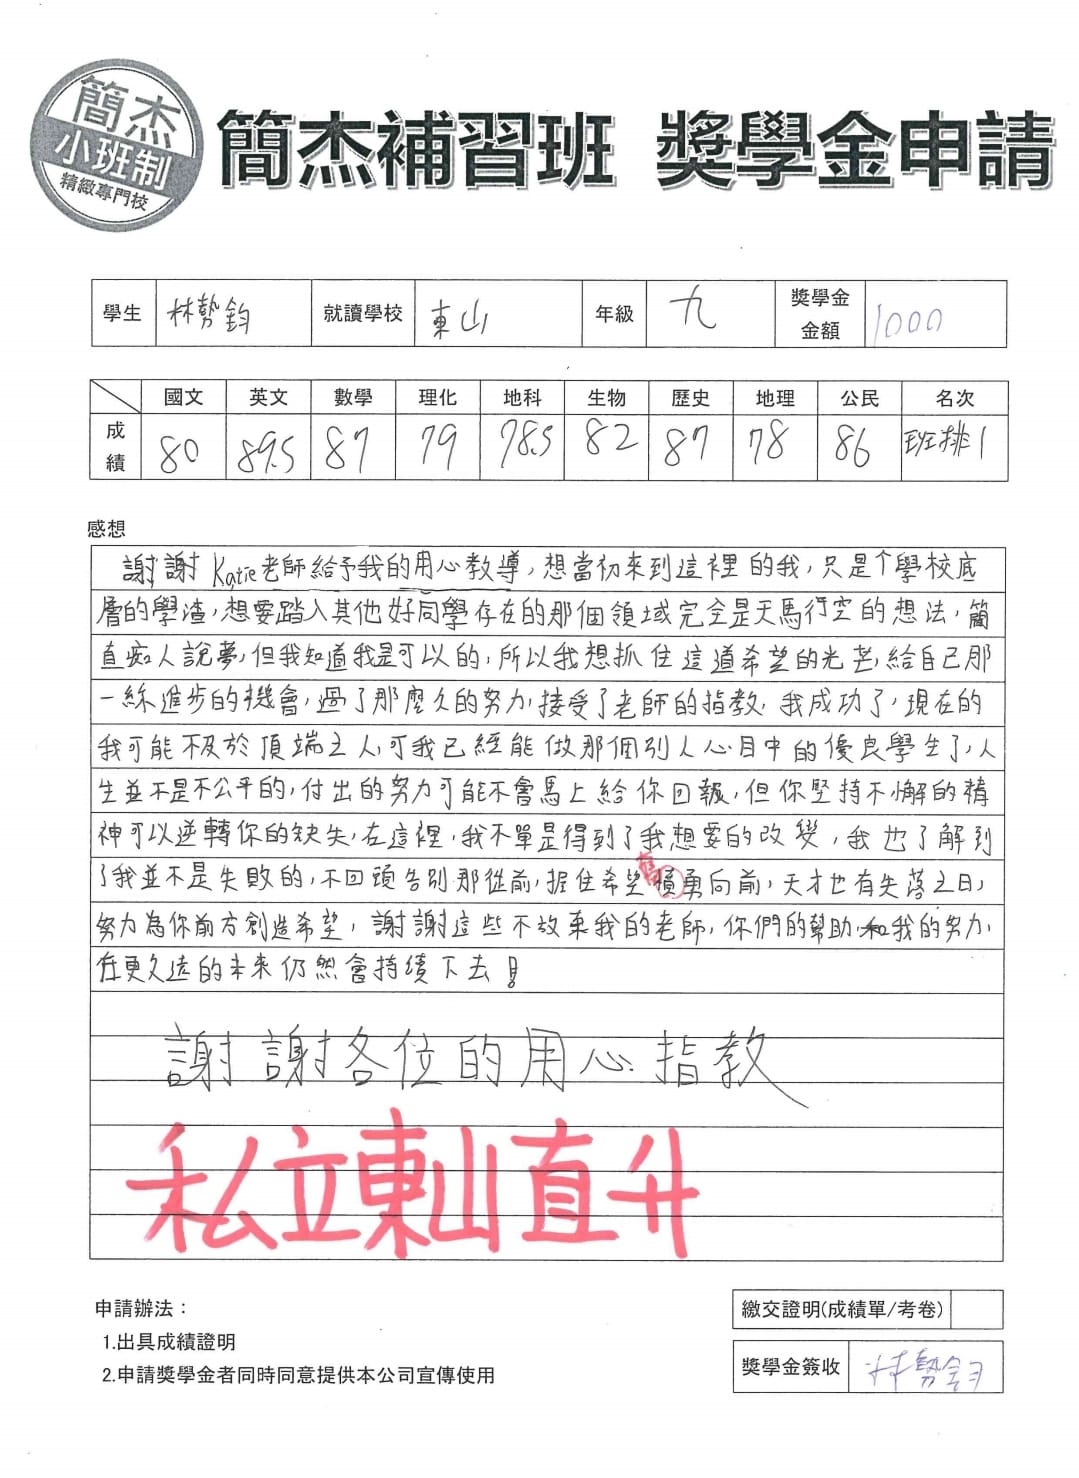 簡杰
小班制
精緻專門校
簡杰補習班 獎學金申請
學生 林勢鈞 就讀學校 東山 年級 九 獎學金金額 1000
國文 英文 數學 理化 地科 生物 歷史 地理 公民 名次
成績 80 89.5 87 79 78.5 82 87 78 86 班排1
感想
謝謝Katie老師給予我的用心教導,想當初來到這裡的我,只是个學校底
層的學渣,想要踏入其他好同學存在的那個領域完全是天馬行空的想法,簡
直痴人說夢,但我知道我是可以的,所以我想抓住這道希望的光芒,給自己那
一絲進步的機會,過了那麼久的努力,接受了老師的指教,我成功了,現在的
我可能不及於頂端之人,可我已經能做那個別人心目中的優良學生了,人
生並不是不公平的,付出的努力可能不會馬上給你回報,但你堅持不懈的精
神可以逆轉你的缺失,在這裡,我不單是得到了我想要的改變,我也了解到
了我並不是失敗的,不回頭告別那從前,握住希望憤勇向前,天才也有失落之日,
奮
努力為你前方創造希望,謝謝這些不放棄我的老師,你們的幫助和我的努力,
在更久遠的未來仍然會持續下去!
謝謝各位的用心指教
私立東山直升
申請辦法:
1.出具成績證明
2.申請獎學金者同時同意提供本公司宣傳使用
繳交證明(成績單/考卷)
獎學金簽收 林勢鈞